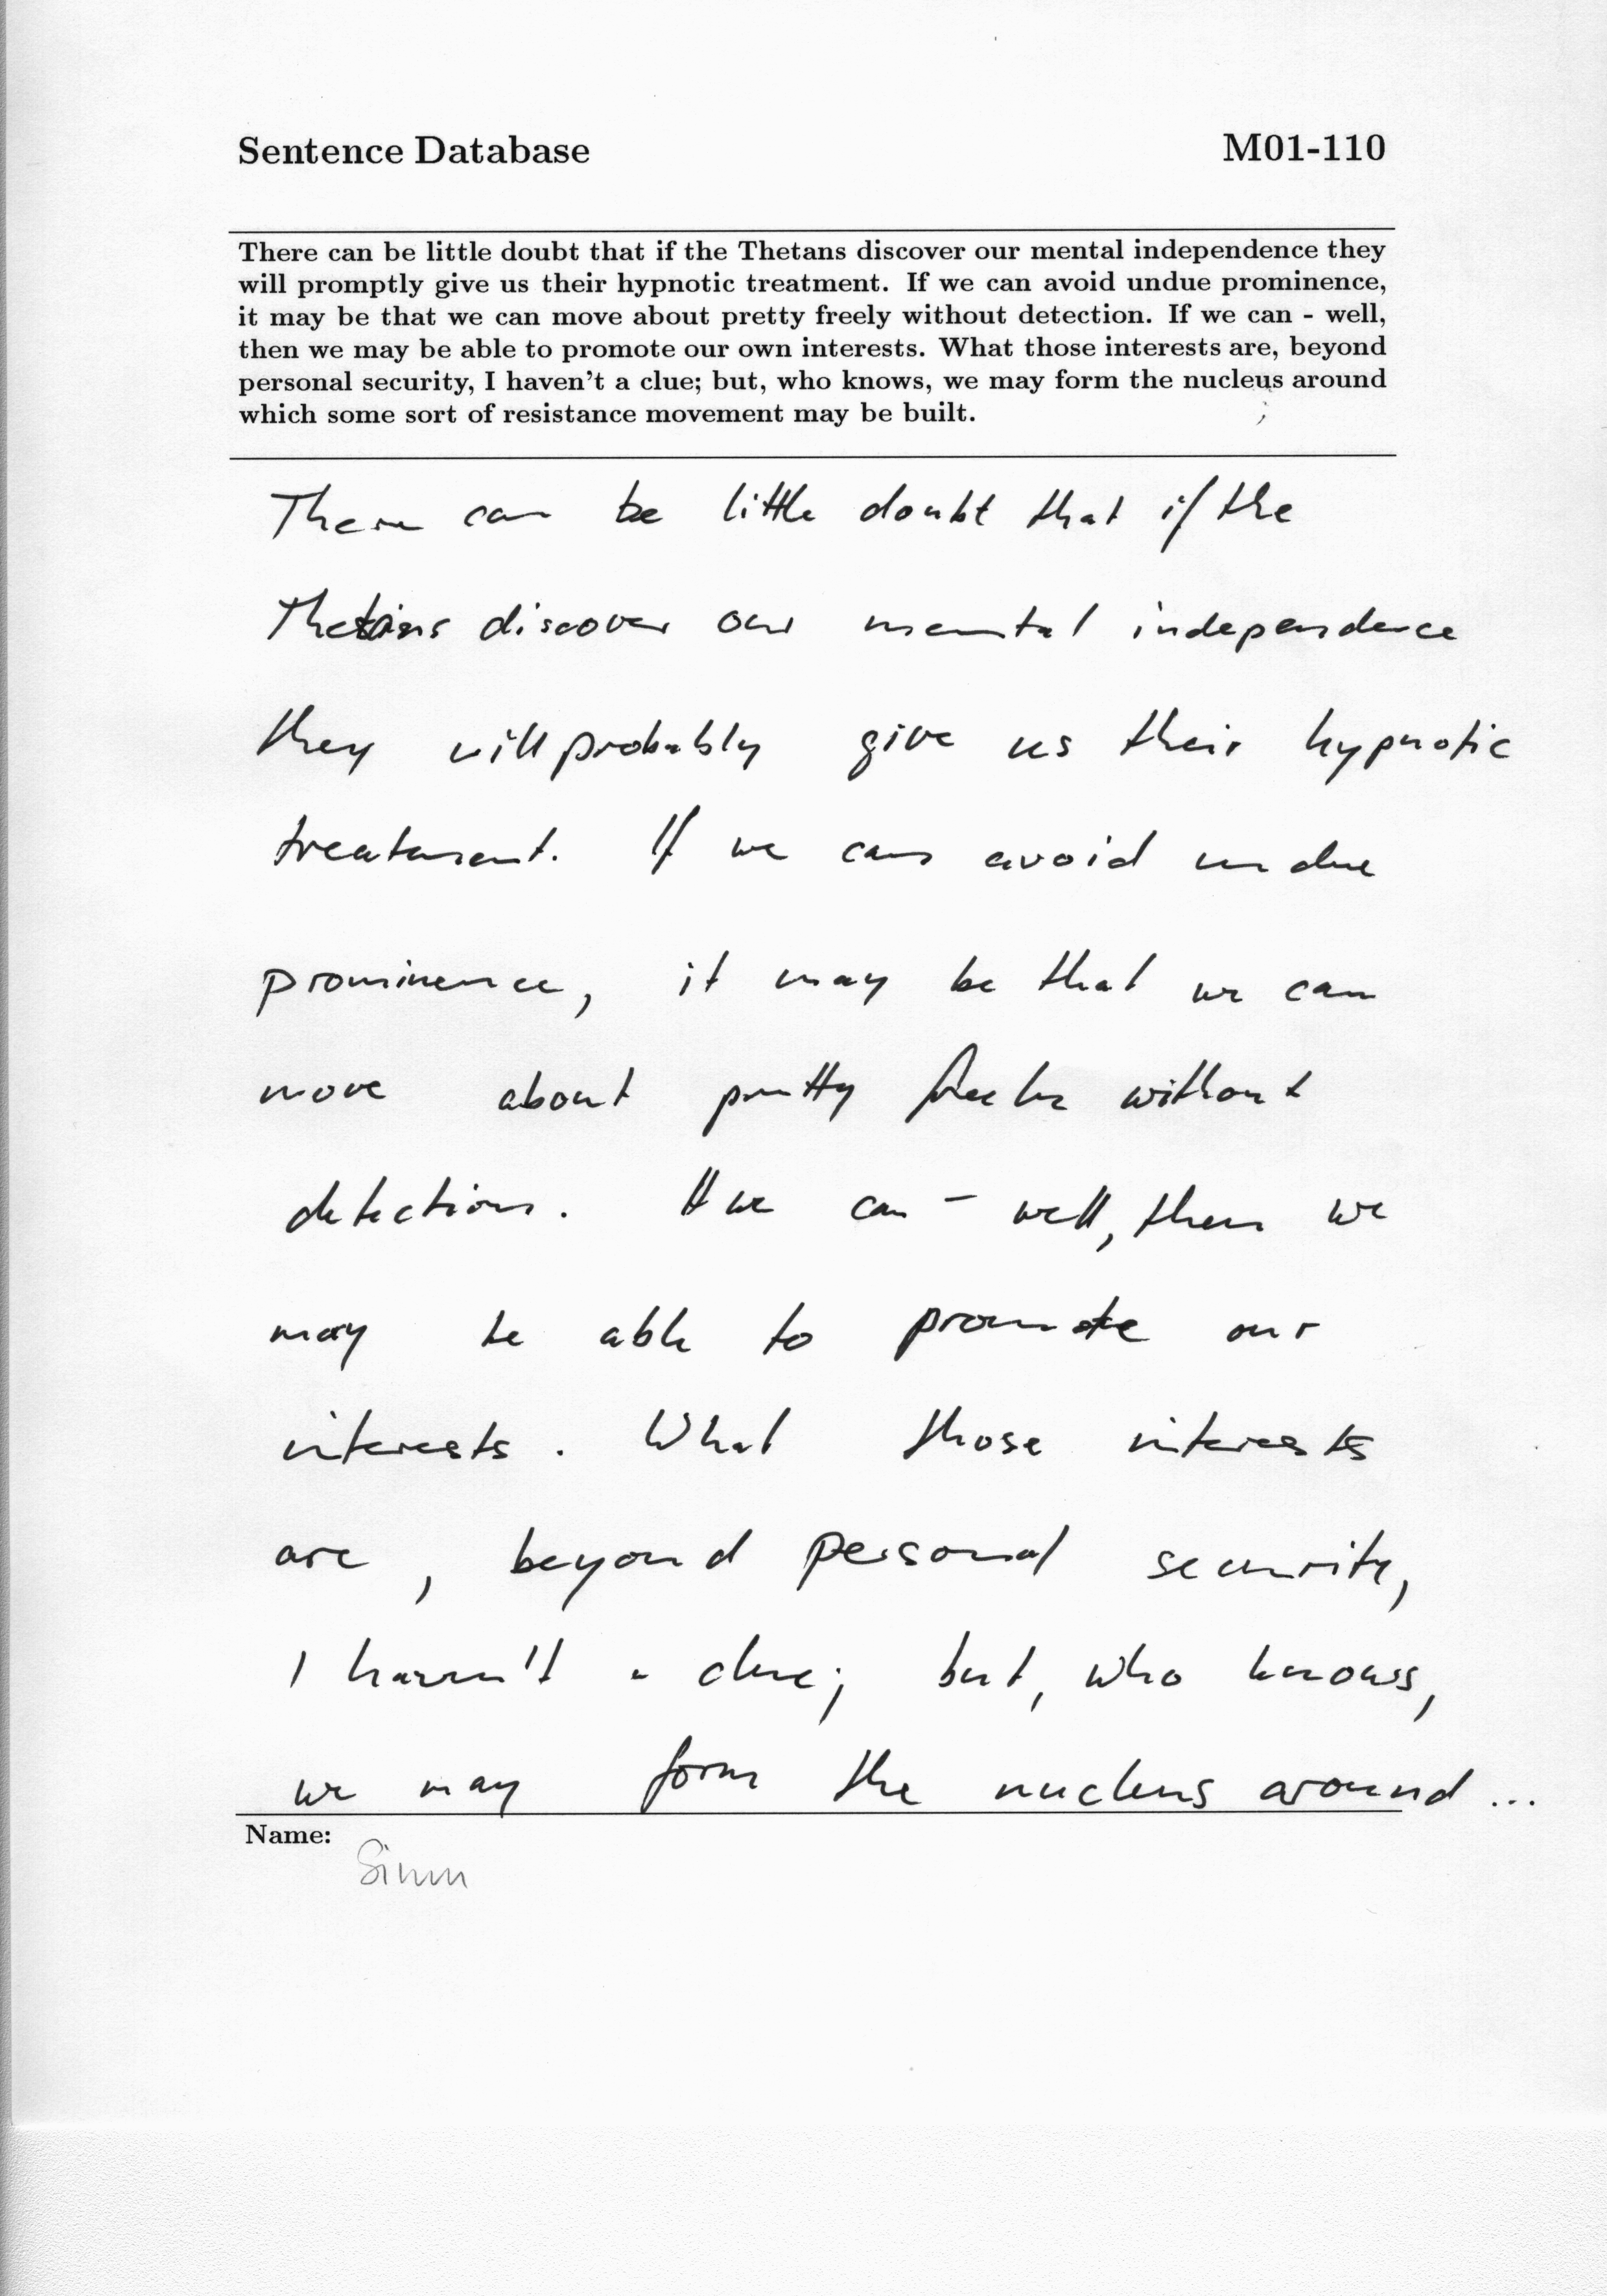 Sentence Database M01-110
There can be little doubt that if the Thetans discover our mental independence they
will promptly give us their hypnotic treatment. If we can avoid undue prominence,
it may be that we can move about pretty freely without detection. If we can - well,
then we may be able to promote our own interests. What those interests are, beyond
personal security, I haven't a clue; but, who knows, we may form the nucleus around
which some sort of resistance movement may be built.
There can be little doubt that if the
Thetans discover our mental independence
they will probably give us their hypnotic
treatment. If we can avoid undue
prominence, it may be that we can
move about pretty freely without
detection. If we can - well, then we
may be able to promote our
interests. What those interests
are, beyond personal security,
I haven't a clue; but, who knows,
we may form the nucleus around ...
Name: